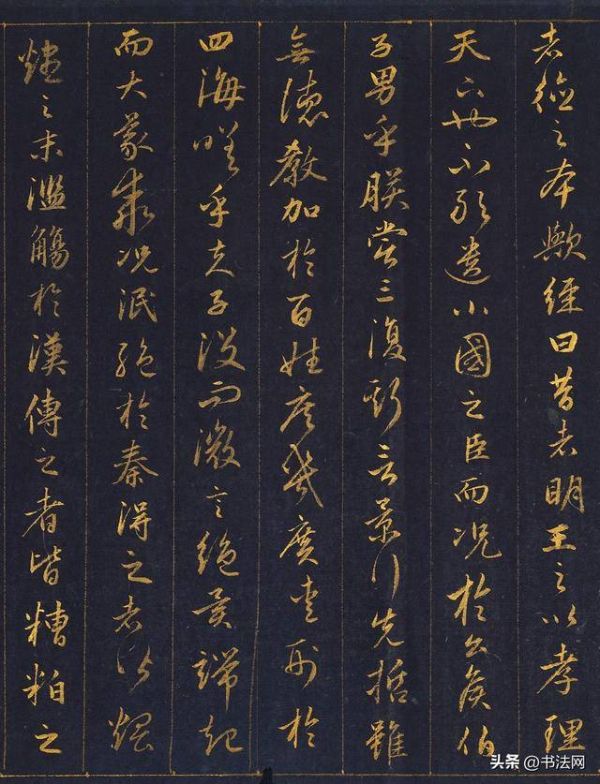 者德之本歟經曰昔者明王之以孝理
天下也不敢遺小國之臣而況於公侯伯
子男乎朕嘗三復斯言景行先哲雖
無德教加於百姓庶幾廣愛刑於
四海嗟乎夫子沒而微言絕異端起
而大義乖況泯絕於秦得之者皆煨
燼之末濫觴於漢傳之者皆糟粕之
头条 @书法网